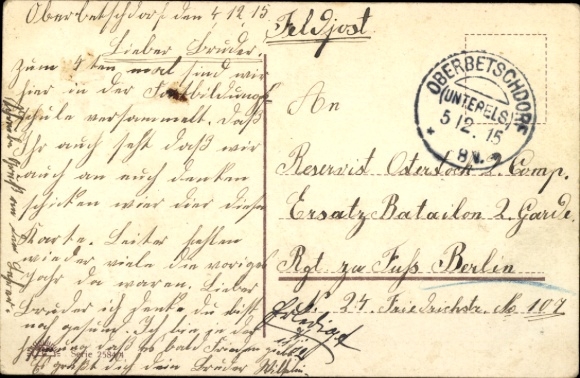 Oberbetschdorf den 4.12.15
Lieber Bruder.
Zum 4ten mal sind wir
hier in der Fortbildungs
schule versammelt. Daß
Ihr auch seht daß wir
auch an euch denken
schicken wier dier diese
Karte. Leiter fehlen
wieder viele die voriges
Jahr da waren. Lieber
Bruder ich denke du bist
noch gesund. Ich bin in der
Hoffnung daß es bald Frieden
Es grüßt dich dein Bruder Wilhelm.
Serie 258
Feldpost
OBERBETSCHDORF
(UNTERELS.)
5 12. 15
8N.
An
Reservist Osterstock 2. Comp.
Ersatz Batailon 2. Garde
Rgt zu Fuss Berlin
S. 24 Friedrichstr. No 107